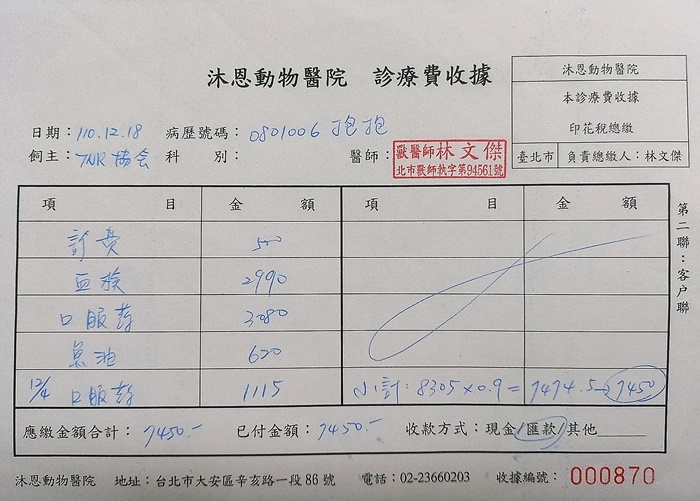 沐恩動物醫院 診療費收據
沐恩動物醫院
本診療費收據
印花稅總繳
臺北市 負責總繳人：林文傑
日期：110.12.18 病歷號碼：0801006 抱抱
飼主：TNR協会 科別： 醫師：
獸醫師林文傑
北市獸師執字第94561號
項目 金額 項目 金額
診費 500
血檢 2990
口服葯 3080
魚油 620
12/4 口服葯 1115 小計：8305×0.9=7474.5→7450
應繳金額合計：7450.- 已付金額：7450.- 收款方式：現金/匯款/其他
第二聯：客戶聯
沐恩動物醫院 地址：台北市大安區辛亥路一段86號 電話：02-23660203 收據編號：000870